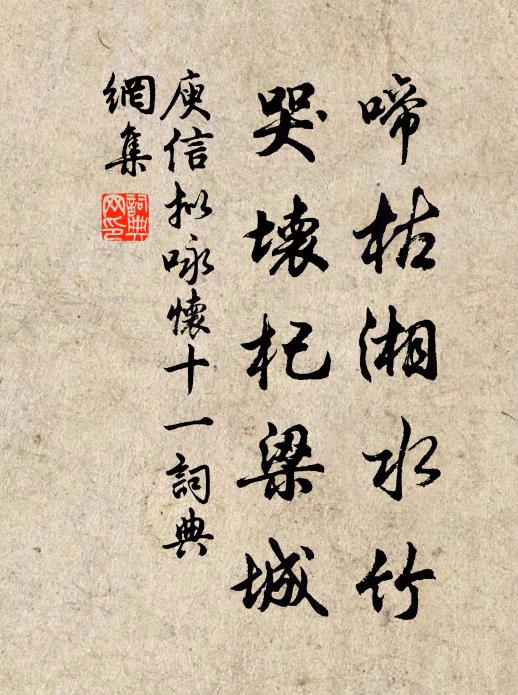 啼枯湘水竹
哭壞杞梁城
庾信拟咏懷十一詞典
網集
詞典網印